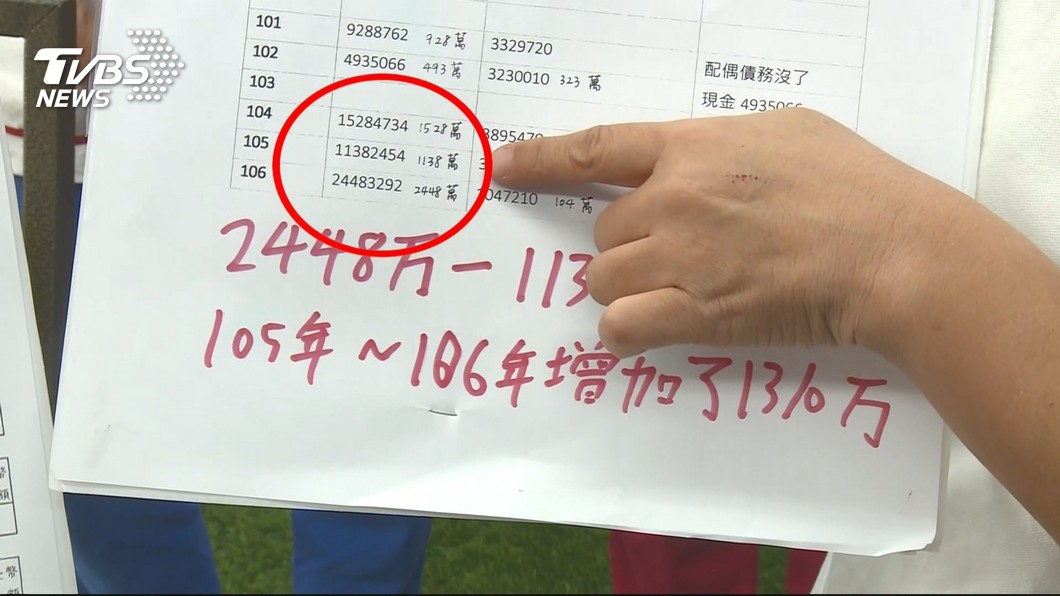 TVBS
NEWS
101 9288762 928萬 3329720
102 4935066 493萬 3230010 323萬 配偶債務沒了
103 現金 4935066
104 15284734 1528萬 3895470
105 11382454 1138萬 3
106 24483292 2448萬 1047210 104萬
2448万-113
105年~106年增加了1310万
幣
額
幣
額